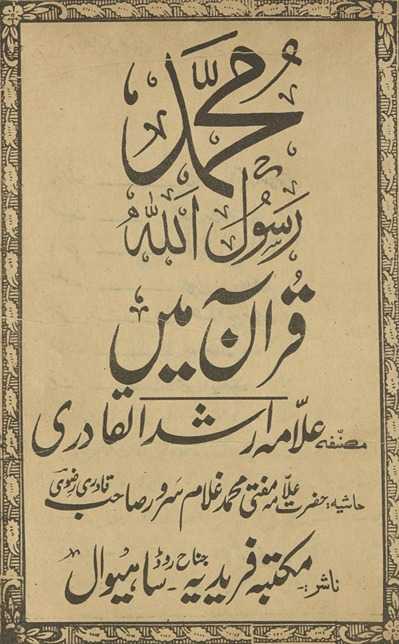 مُحَمَّدٌ
رَسُوۡلُ اللّٰہِ
قُرآن میں
مصنّفہ علاّمہ ارشد القادری
حاشیہ: حضرت علامہ مفتی محمد غلام سرور صاحب قادری رضوی
ناشر: مکتبہ فریدیہ جناح روڈ۔ ساہیوال